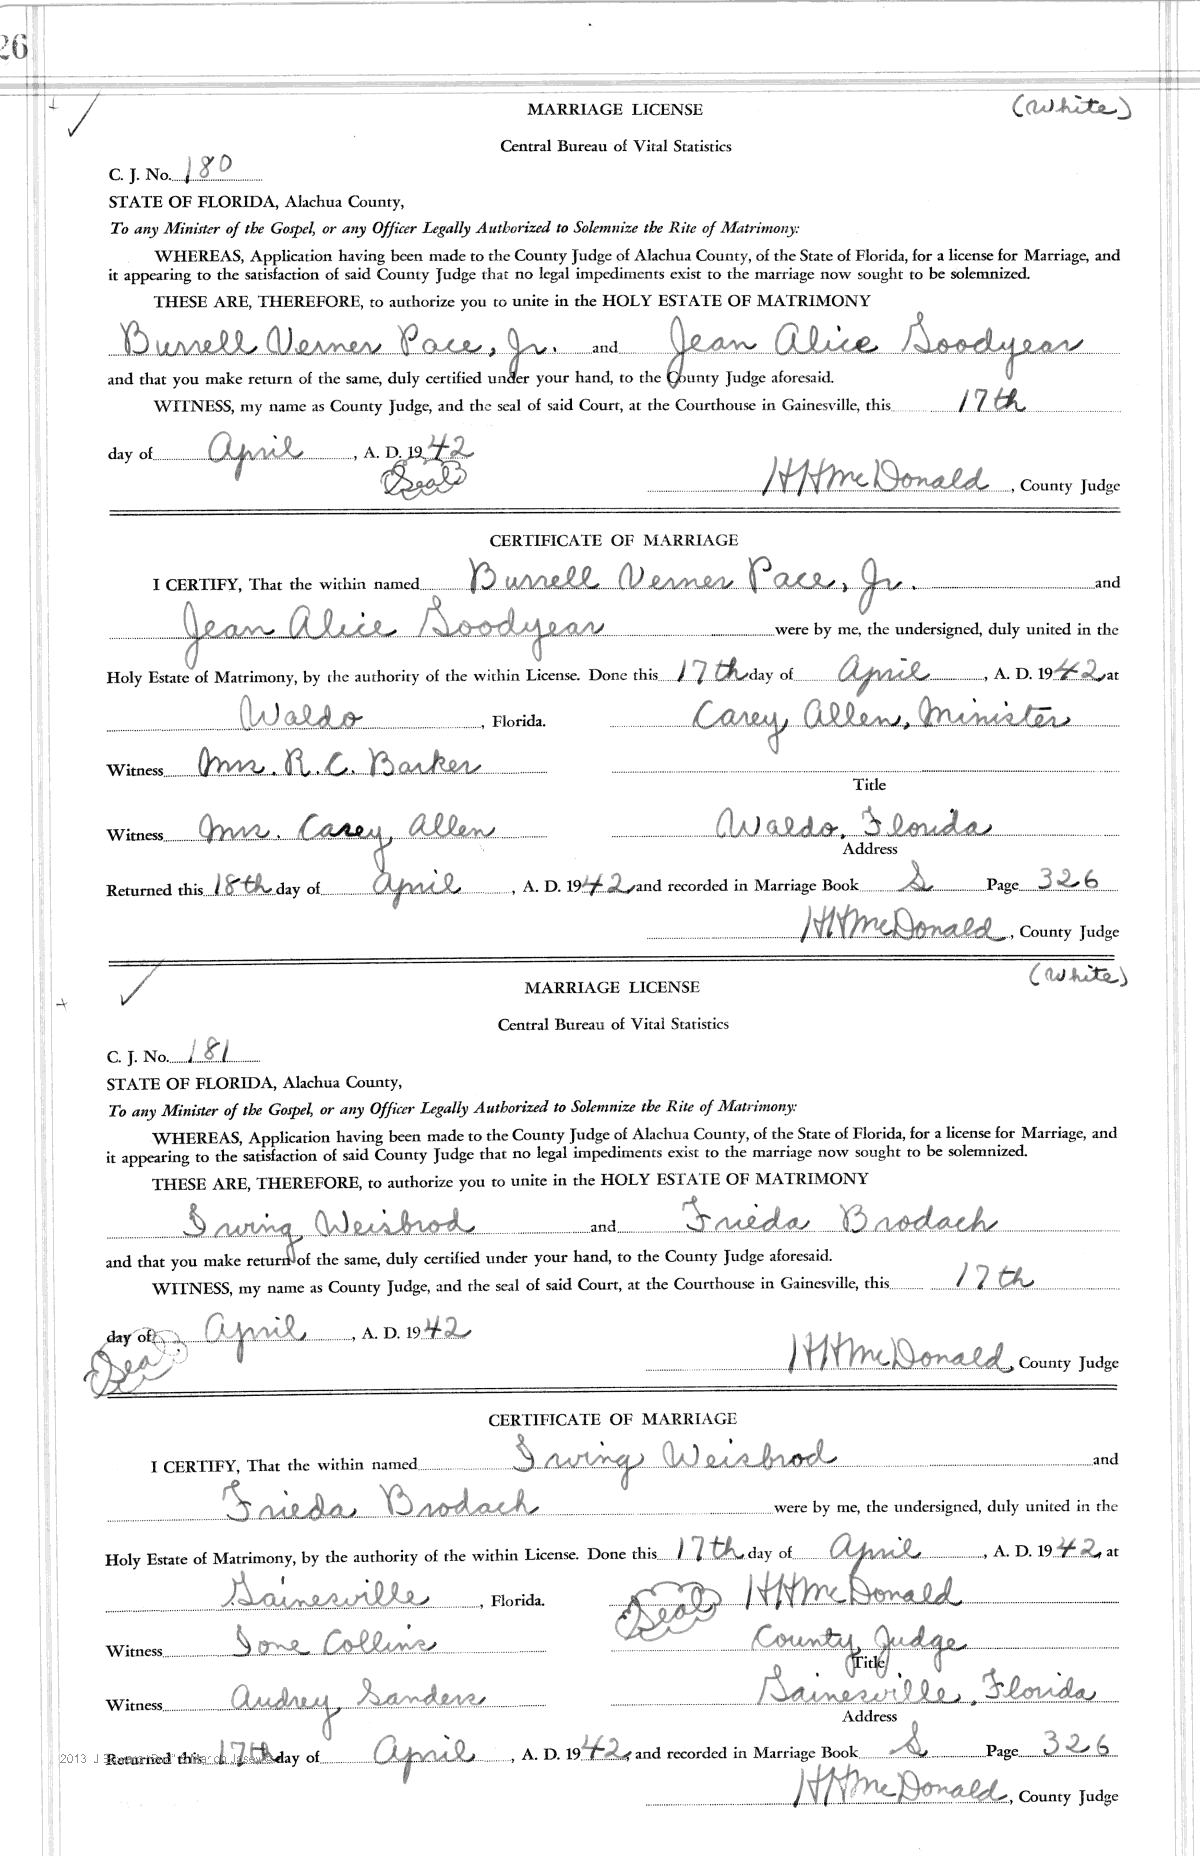 26
MARRIAGE LICENSE (White)
Central Bureau of Vital Statistics
C. J. No. 180
STATE OF FLORIDA, Alachua County,
To any Minister of the Gospel, or any Officer Legally Authorized to Solemnize the Rite of Matrimony:
WHEREAS, Application having been made to the County Judge of Alachua County, of the State of Florida, for a license for Marriage, and
it appearing to the satisfaction of said County Judge that no legal impediments exist to the marriage now sought to be solemnized.
THESE ARE, THEREFORE, to authorize you to unite in the HOLY ESTATE OF MATRIMONY
Burrell Verner Pace, Jr. and Jean Alice Goodyear
and that you make return of the same, duly certified under your hand, to the County Judge aforesaid.
WITNESS, my name as County Judge, and the seal of said Court, at the Courthouse in Gainesville, this 17th
day of April, A. D. 1942
(Seal) HHMcDonald, County Judge
CERTIFICATE OF MARRIAGE
I CERTIFY, That the within named Burrell Verner Pace, Jr. and
Jean Alice Goodyear were by me, the undersigned, duly united in the
Holy Estate of Matrimony, by the authority of the within License. Done this 17th day of April, A. D. 1942, at
Waldo, Florida. Carey Allen, Minister
Witness Mrs. R. C. Barker
Title
Witness Mrs. Carey Allen Waldo, Florida
Address
Returned this 18th day of April, A. D. 1942, and recorded in Marriage Book S Page 326
HHMcDonald, County Judge
(White)
MARRIAGE LICENSE
Central Bureau of Vital Statistics
C. J. No. 181
STATE OF FLORIDA, Alachua County,
To any Minister of the Gospel, or any Officer Legally Authorized to Solemnize the Rite of Matrimony:
WHEREAS, Application having been made to the County Judge of Alachua County, of the State of Florida, for a license for Marriage, and
it appearing to the satisfaction of said County Judge that no legal impediments exist to the marriage now sought to be solemnized.
THESE ARE, THEREFORE, to authorize you to unite in the HOLY ESTATE OF MATRIMONY
Irving Weisbrod and Frieda Brodach
and that you make return of the same, duly certified under your hand, to the County Judge aforesaid.
WITNESS, my name as County Judge, and the seal of said Court, at the Courthouse in Gainesville, this 17th
day of April, A. D. 1942
(Seal) HHMcDonald, County Judge
CERTIFICATE OF MARRIAGE
I CERTIFY, That the within named Irving Weisbrod and
Frieda Brodach were by me, the undersigned, duly united in the
Holy Estate of Matrimony, by the authority of the within License. Done this 17th day of April, A. D. 1942, at
Gainesville, Florida. (Seal) HHMcDonald
Witness Ione Collins County Judge
Title
Witness Audrey Sanders Gainesville, Florida
Address
2013 J
Returned this 17th day of April, A. D. 1942, and recorded in Marriage Book S Page 326
HHMcDonald, County Judge